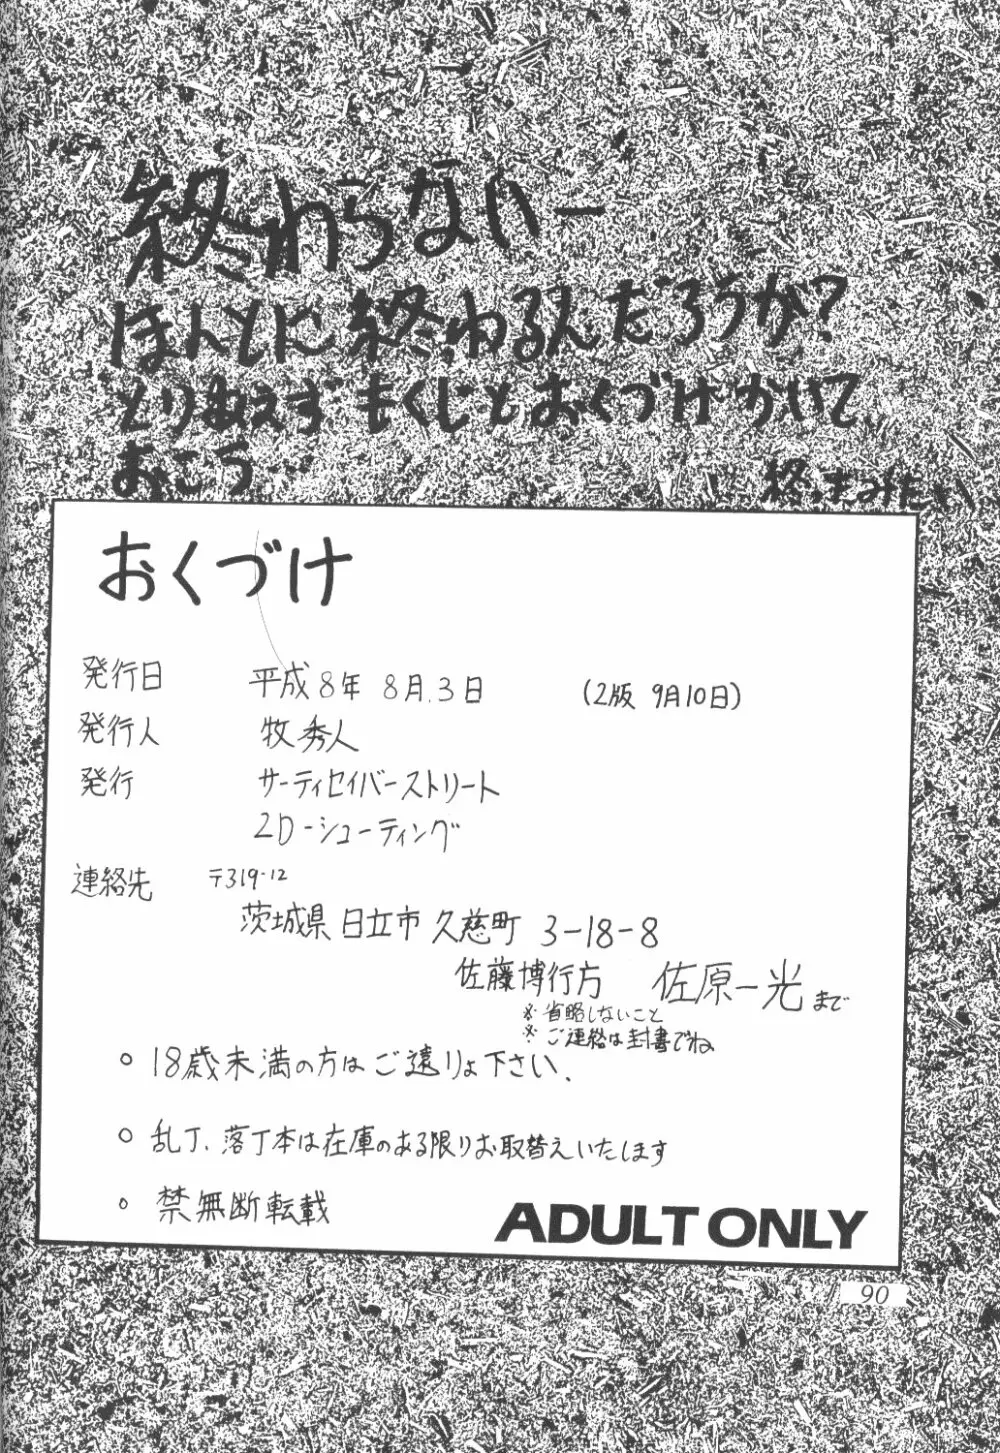 終わらないー
ほんとに終わるんだろうか?
とりあえずもくじとおくづけかいて
おこう
終ったみたい
おくづけ
発行日 平成8年 8月.3日 (2版 9月10日)
発行人 牧 秀人
発行 サーティセイバーストリート
2D-シューティング
連絡先 〒319-12
茨城県 日立市 久慈町 3-18-8
佐藤博行方 佐原一光まで
※省略しないこと
※ご連絡は封書でね
○ 18歳未満の方はご遠りょ下さい.
○ 乱丁、落丁本は在庫のある限りお取替えいたします
○ 禁無断転載
ADULT ONLY
90